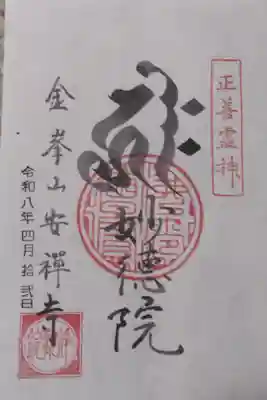 正善霊神
妙徳院
金峯山安禅寺
令和八年四月拾弐日